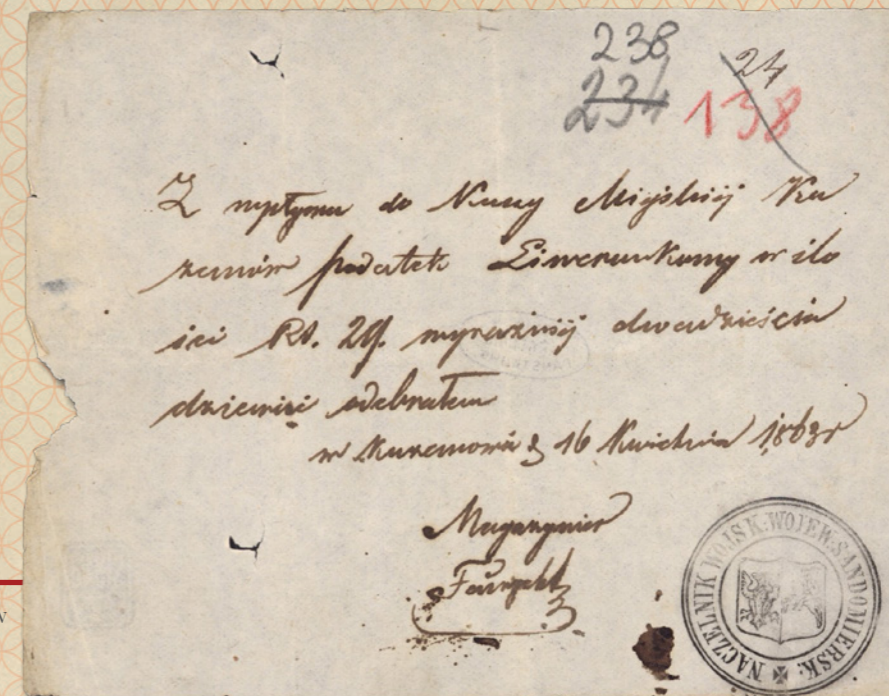 238
234
24
138
Z wpływu do Kassy Miejskiej Ku
rzemów podatek Liwerunkowy w ilo
ści Rs. 29. wyrazniej dwadzieścia
dziewięć odebrałem
w Kurzemowie d 16 Kwietnia 1863 r
Magazynier
NACZELNIK WOJSK: WOJEW. SANDOMIERSK.